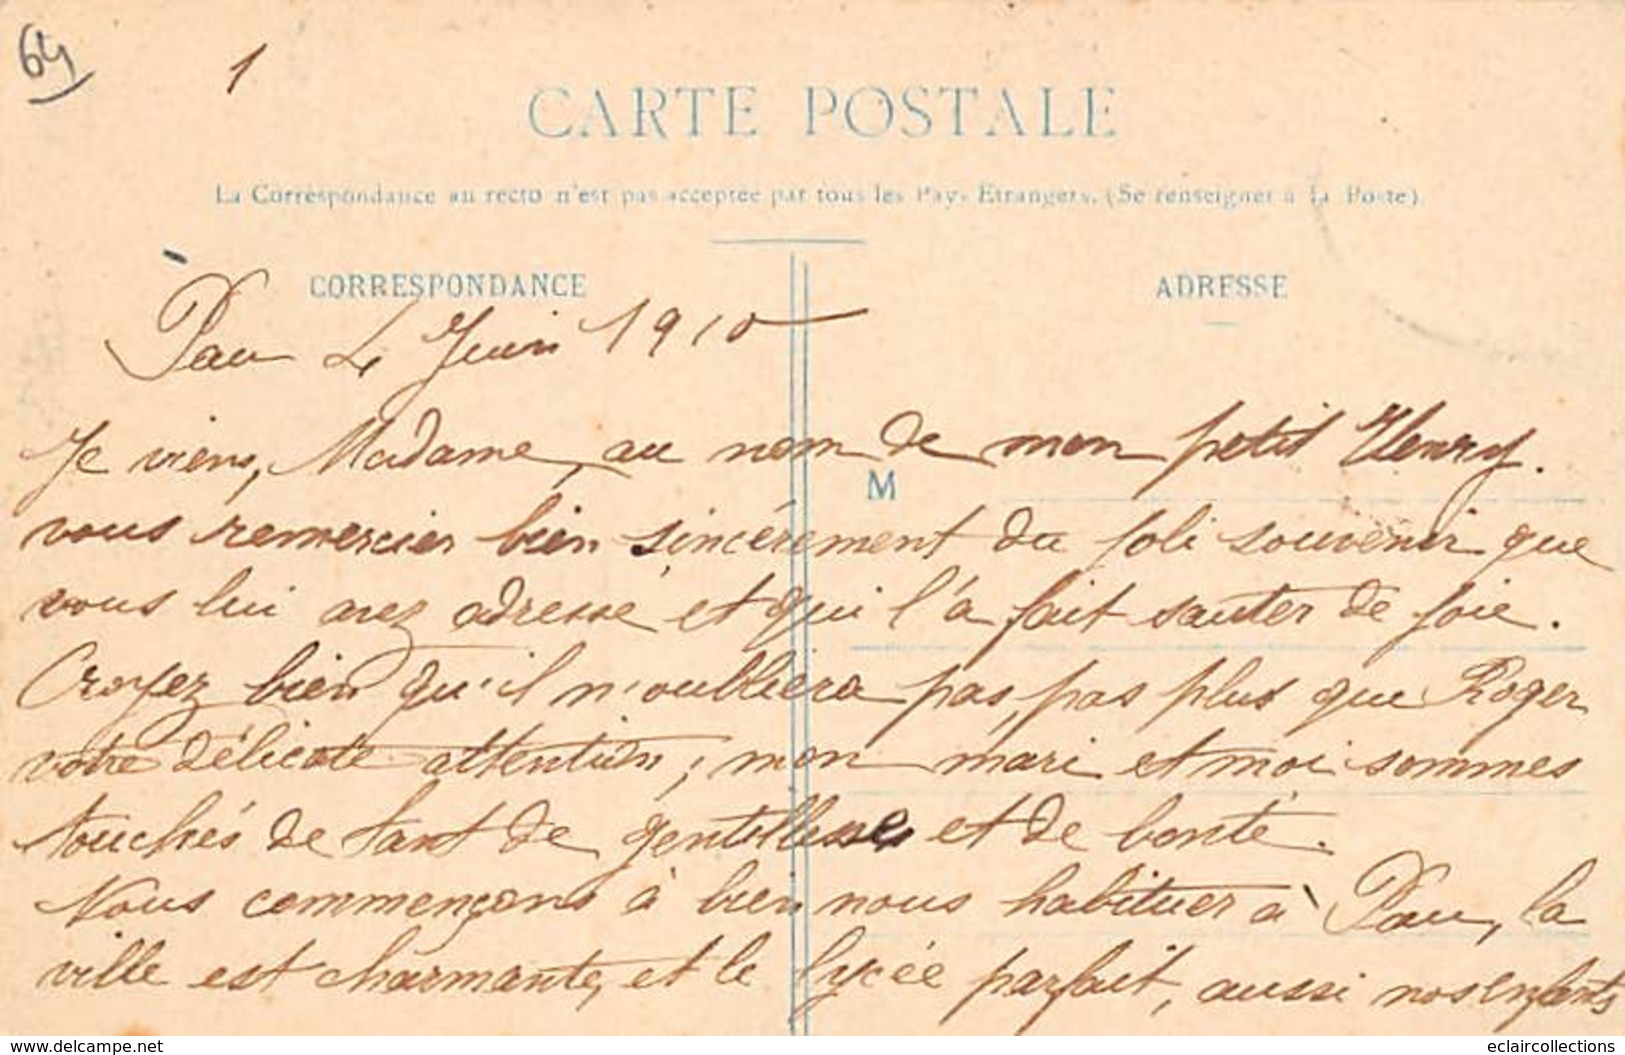 64
1
CARTE POSTALE
La Correspondance au recto n'est pas acceptée par tous les Pays Etrangers. (Se renseigner à la Poste)
CORRESPONDANCE
ADRESSE
Pau 4 Juin 1910
Je viens, Madame, au nom de mon petit Henry.
M
vous remercier bien sincèrement du joli souvenir que
vous lui avez adressé et qui l'a fait sauter de joie.
Croyez bien qu'il n'oubliera pas, pas plus que Roger
votre délicate attention; mon mari et moi sommes
touchés de tant de gentillesse et de bonté.
Nous commençons à bien nous habituer à Pau, la
ville est charmante, et le lycée parfait, aussi nos enfants
delcampe.net
eclaircollections